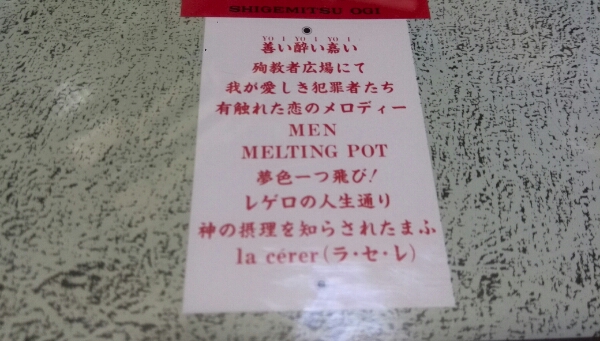 SHIGEMITSU OGI
YO I YO I YO I
善い酔い嘉い
殉教者広場にて
我が愛しき犯罪者たち
有触れた恋のメロディー
MEN
MELTING POT
夢色一つ飛び!
レゲロの人生通り
神の摂理を知らされたまふ
la cérer(ラ・セ・レ)